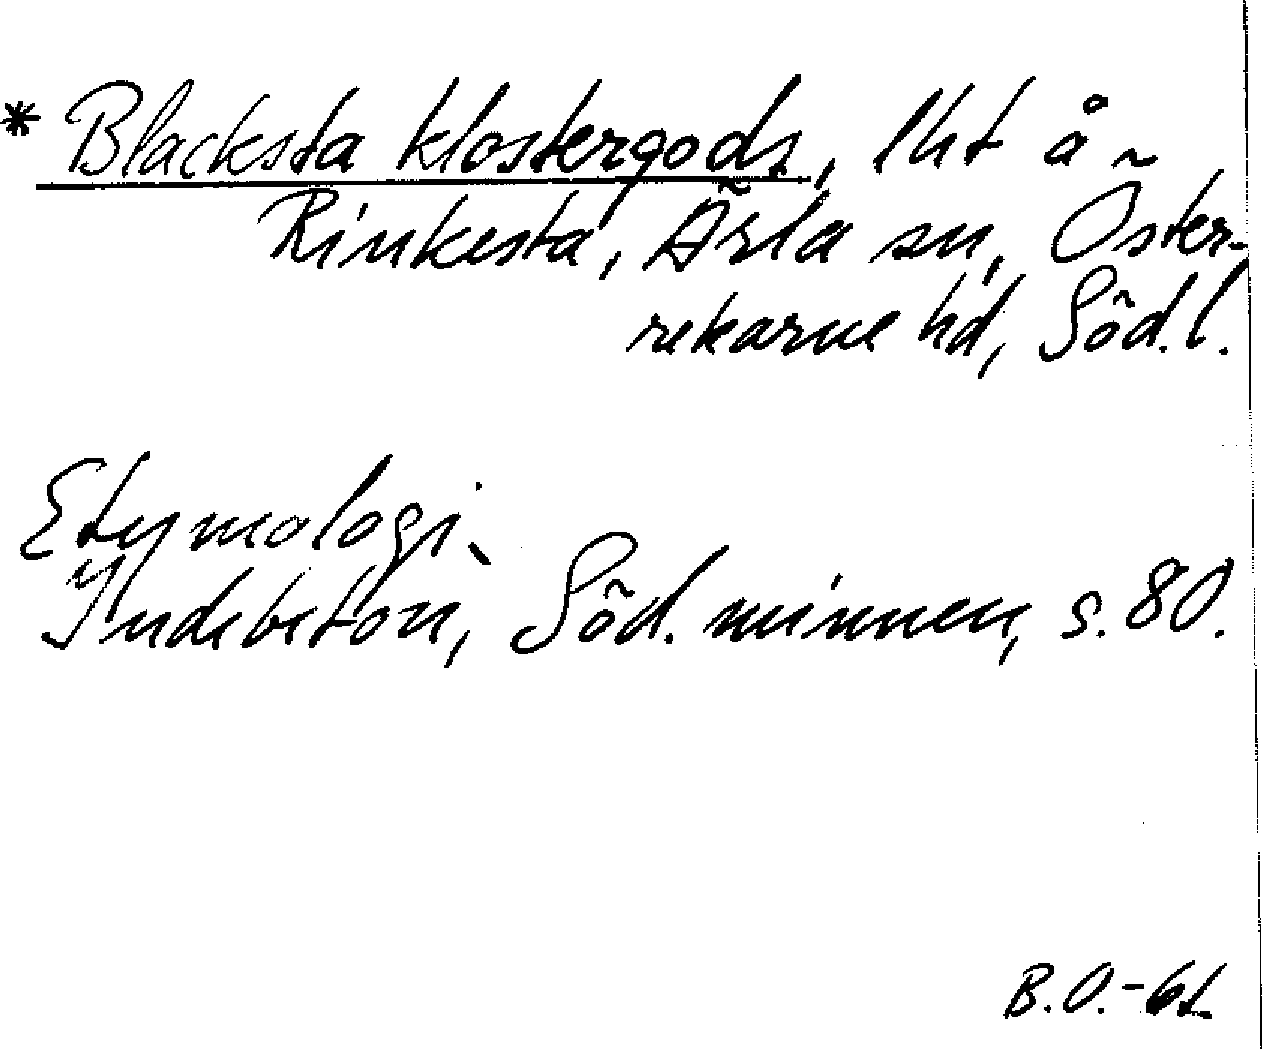 * Blacksta klostergods, lht å
Rinkesta, Ärla sn, Öster-
rekarne hd, Söd. l.
Etymologi.
Indebetou, Söd. minnen, s. 80.
B.O.-61